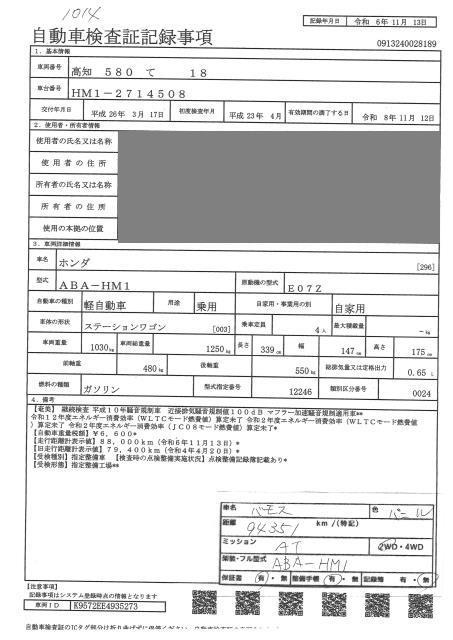 1014
記録年月日 令和 6年11月13日
自動車検査証記録事項
0913240028189
1. 基本情報
車両番号 高知 580 て 18
車台番号 HM1-2714508
交付年月日 平成26年 3月17日 初度検査年月 平成23年 4月 有効期間の満了する日 令和 8年11月12日
2. 使用者・所有者情報
使用者の氏名又は名称
使用者の住所
所有者の氏名又は名称
所有者の住所
使用の本拠の位置
3. 車両詳細情報
車名 ホンダ [296]
型式 ABA-HM1 原動機の型式 E07Z
自動車の種別 軽自動車 用途 乗用 自家用・事業用の別 自家用
車体の形状 ステーションワゴン [003] 乗車定員 4人 最大積載量 -kg
車両重量 1030kg 車両総重量 1250kg 長さ 339cm 幅 147cm 高さ 175cm
前軸重 480kg 後軸重 550kg 総排気量又は定格出力 0.65 L
燃料の種類 ガソリン 型式指定番号 12246 類別区分番号 0024
4. 備考
継続検査 平成10年騒音規制車 近接排気騒音規制値100dB マフラー加速騒音規制適用車**
令和12年度エネルギー消費効率(WLTCモード燃費値)算定未了 令和2年度エネルギー消費効率(WLTCモード燃費値
)算定未了 令和2年度エネルギー消費効率(JC08モード燃費値)算定未了*
【自動車重量税額】¥6,600*
【走行距離計表示値】88,000km(令和6年11月13日)*
【旧走行距離計表示値】79,400km(令和4年4月20日)*
【受検種別】指定整備車 【検査時の点検整備実施状況】点検整備記録簿記載あり*
【受検形態】指定整備工場**
車名 バモス 色 パール
距離 94351 km/(特記)
ミッション AT 2WD・4WD
架装・フル型式 ABA-HM1
保証書 有・無 整備手帳 有・無 記録簿 有・無
【注意事項】
記録事項はシステム登録時点の情報となります
車両ID K9572EE4935273